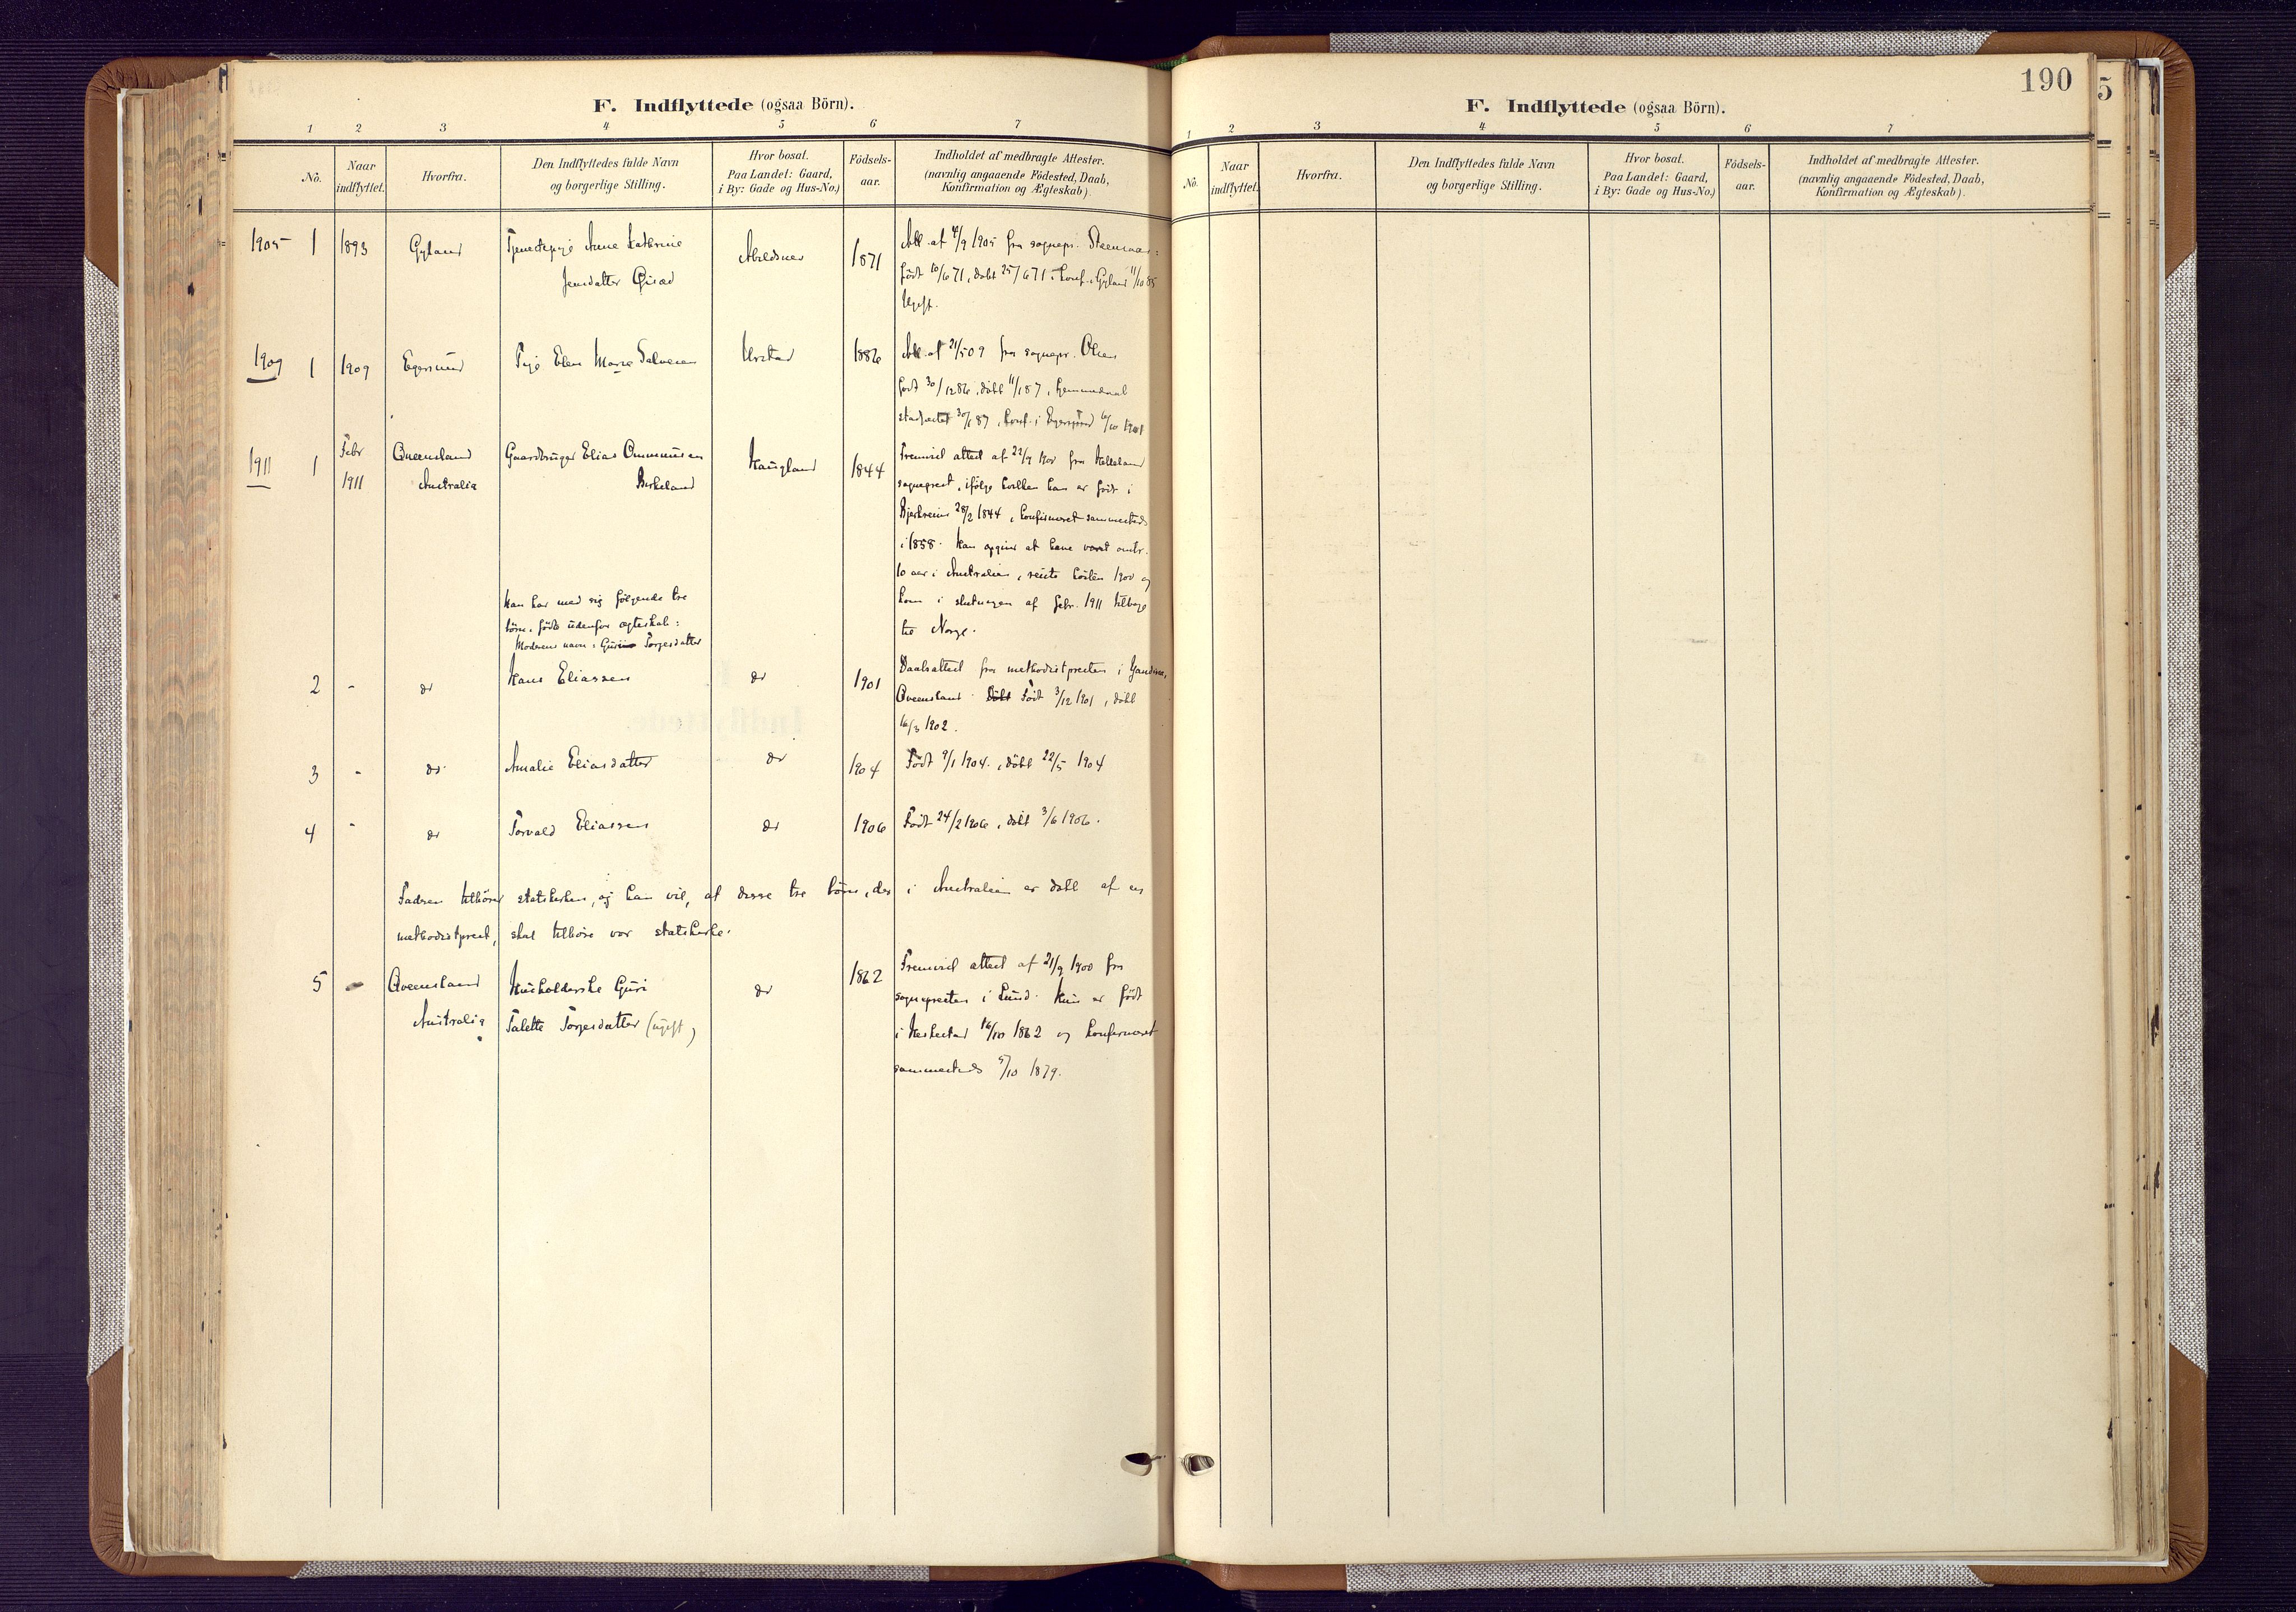 190
5
F. Indflyttede (ogsaa Börn).
1 2 3 4 5 6 7
No.
Naar indflyttet.
Hvorfra.
Den Indflyttedes fulde Navn
og borgerlige Stilling.
Hvor bosat.
Paa Landet: Gaard,
i By: Gade og Hus-No.)
Födsels-
aar.
Indholdet af medbragte Attester.
(navnlig angaaende Födested, Daab,
Konfirmation og Ægteskab).
1905 1 1893 Gyland Tjenestepige Anne Katherine
Jensdatter Abelsnes 1871
Att. af /9 1905 fra sognepr.
født 10/6 71, døbt 25/6 71, konf. i Gyland 11/10 85
Ugift.
1909 1 1909 Egersund Pige Elen Marie Salvesen Urstad 1886
Att. af 21/5 09 fra sognepr. Olsen
født 30/12 86, døbt 11/1 87, hjemmedaab
stadfæstet 30/1 87, konf. i Egersund 6/10 1901
1911 1 Febr 1911 Queensland
Australia
Gaardbruger Elias Ommundsen
Birkeland
Haugland 1844
Fremvist attest af 22/9 1900 fra Helleland
sogneprest, ifølge hvilken han er født i
Bjerkreim 28/2 1844, konfirmeret sammesteds
i 1858. Han opgiver at have været omtr.
10 aar i Australien, reiste høsten 1900 og
kom i slutningen af febr. 1911 tilbage
til Norge.
Han har med sig følgende tre
børn, fødte udenfor ægteskab:
Moderens navn: Guri Torgersdatter
2 - do Hans Eliassen do 1901
Daabsattest fra methodistpresten i
Queensland. Døbt Født 3/12 1901, døbt
16/3 1902.
3 - do Amalie Eliasdatter do 1904
Født 9/1 1904, døbt 22/5 1904
4 - do Torvald Eliassen do 1906
Født 24/2 1906, døbt 3/6 1906.
Faderen tilhører statskirken, og han vil, at disse tre børn, der i Australien er døbt af en
methodistprest, skal tilhøre vor statskirke.
5 - Queensland
Australia
Husholderske Guri
Talette Torgersdatter (ugift)
do 1862
Fremvist attest af 21/9 1900 fra
sognepresten i Lund. Hun er født
i Heskestad 16/10 1862 og konfirmeret
sammesteds 5/10 1879.
F. Indflyttede (ogsaa Börn).
1 2 3 4 5 6 7
No.
Naar indflyttet.
Hvorfra.
Den Indflyttedes fulde Navn
og borgerlige Stilling.
Hvor bosat.
Paa Landet: Gaard,
i By: Gade og Hus-No.)
Födsels-
aar.
Indholdet af medbragte Attester.
(navnlig angaaende Födested, Daab,
Konfirmation og Ægteskab).